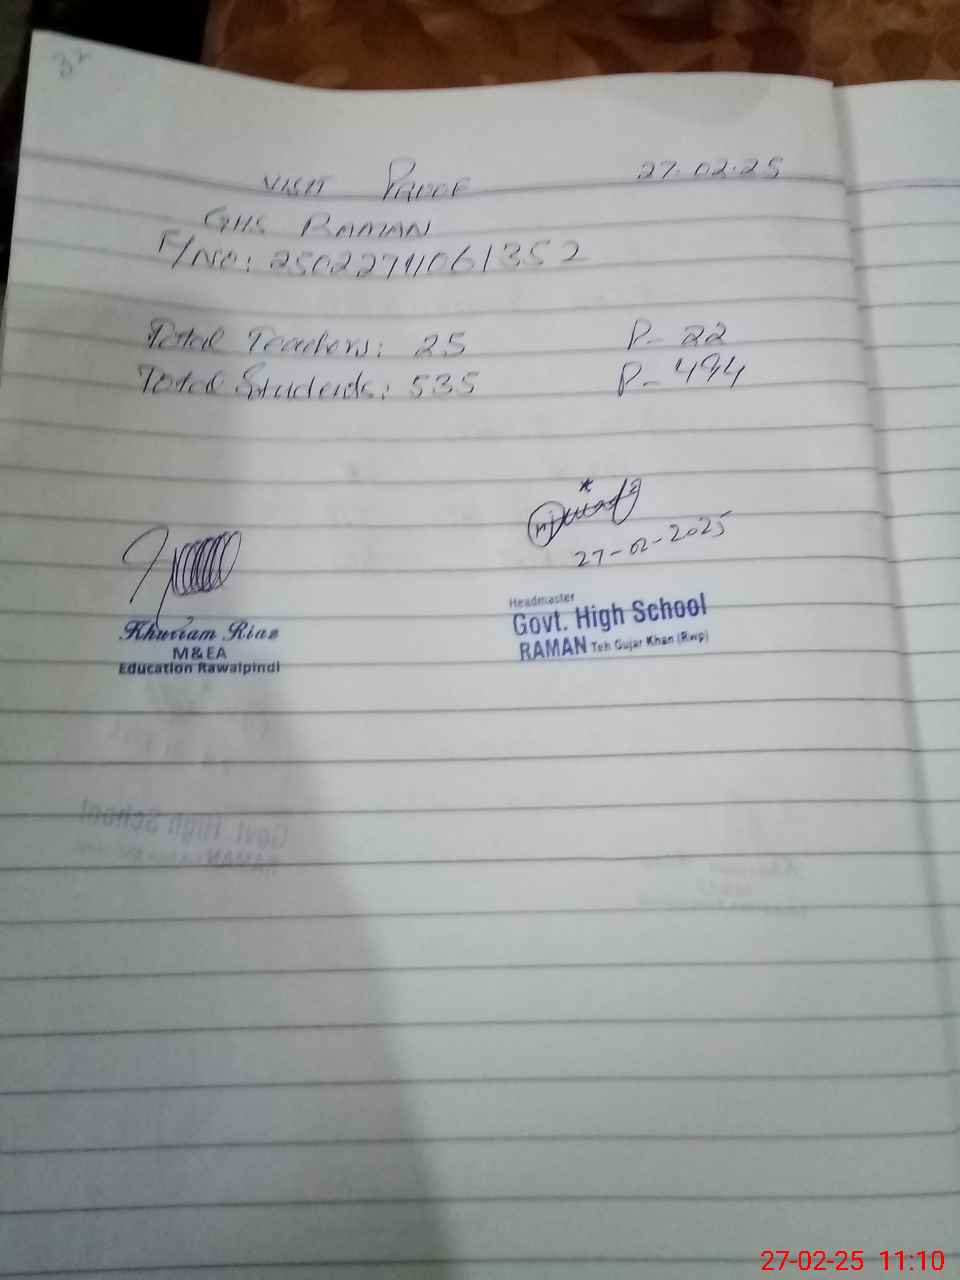 VISIT PROOF 27.02.25
GHS RAMAN
F/NO: 2502271061352
Total Teachers: 25 P- 22
Total Students: 535 P- 494
27-02-2025
Khurram Riaz
M&EA
Education Rawalpindi
Headmaster
Govt. High School
RAMAN Teh Gujar Khan (Rwp)
Govt. High School
RAMAN
27-02-25 11:10